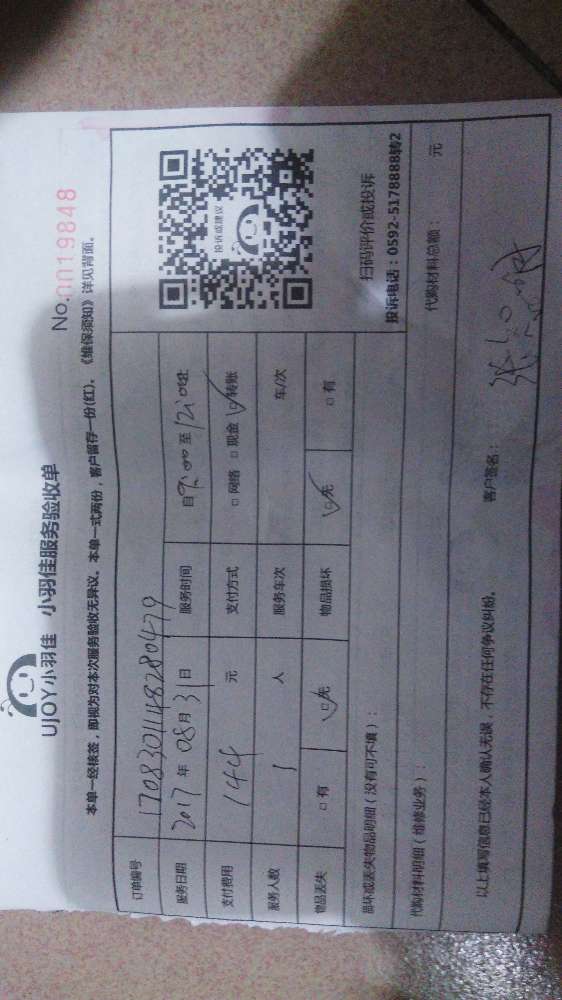 UJOY小羽佳 小羽佳服务验收单
No.0019848
本单一经核签，即视为对本次服务验收无异议。本单一式两份，客户留存一份(红)。《维保须知》详见背面。
订单编号 1708301148280479
服务日期 2017 年 08 月 31 日 服务时间 自 9:00 至 12:00
支付费用 144 元 支付方式 □ 网络 □ 现金 ☑ 转账
服务人数 1 人 服务车次 车/次
物品丢失 □ 有 ☑ 无 物品损坏 ☑ 无 □ 有
投诉或建议
扫码评价或投诉
投诉电话：0592-5178888转2
损坏或丢失物品明细（没有可不填）：
代购材料明细（维修业务）： 代购材料总额： 元
以上填写信息已经本人确认无误，不存在任何争议纠纷。
客户签名：